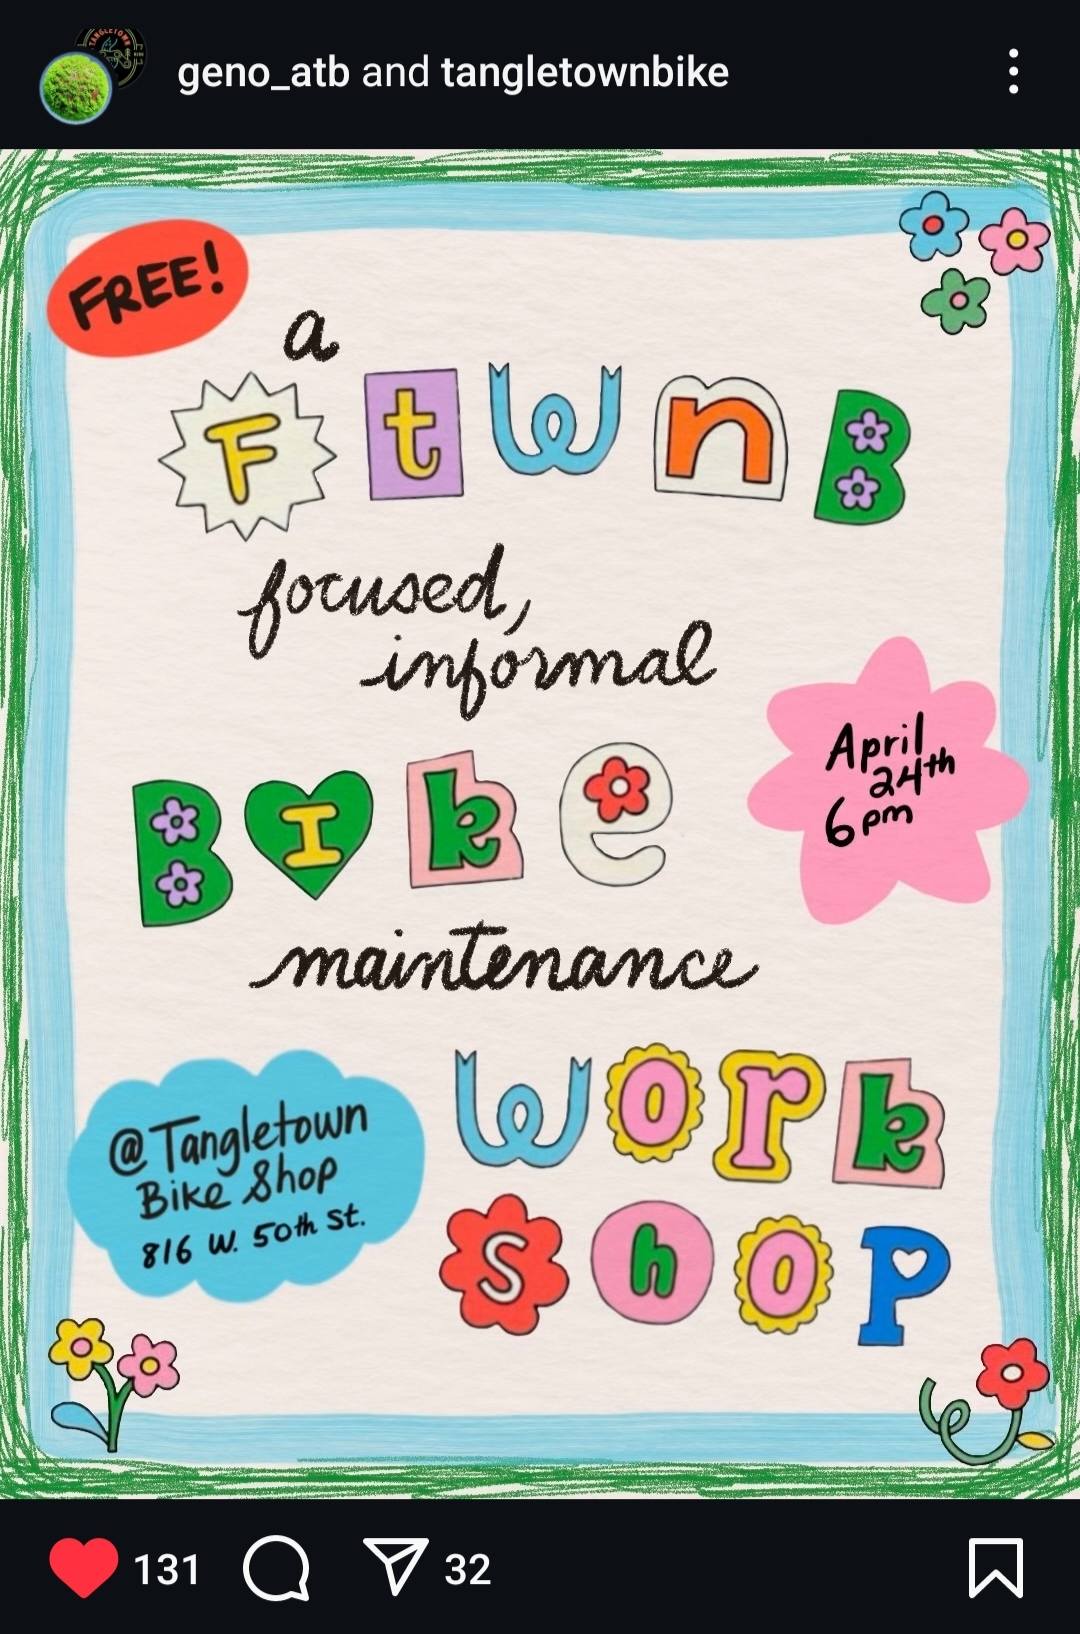 TANGLETOWN
geno_atb and tangletownbike
FREE!
a
Ftwnb
focused,
informal
BIke
April
24th
6pm
maintenance
@Tangletown
Bike Shop
816 W. 50th St.
work
shop
131
32